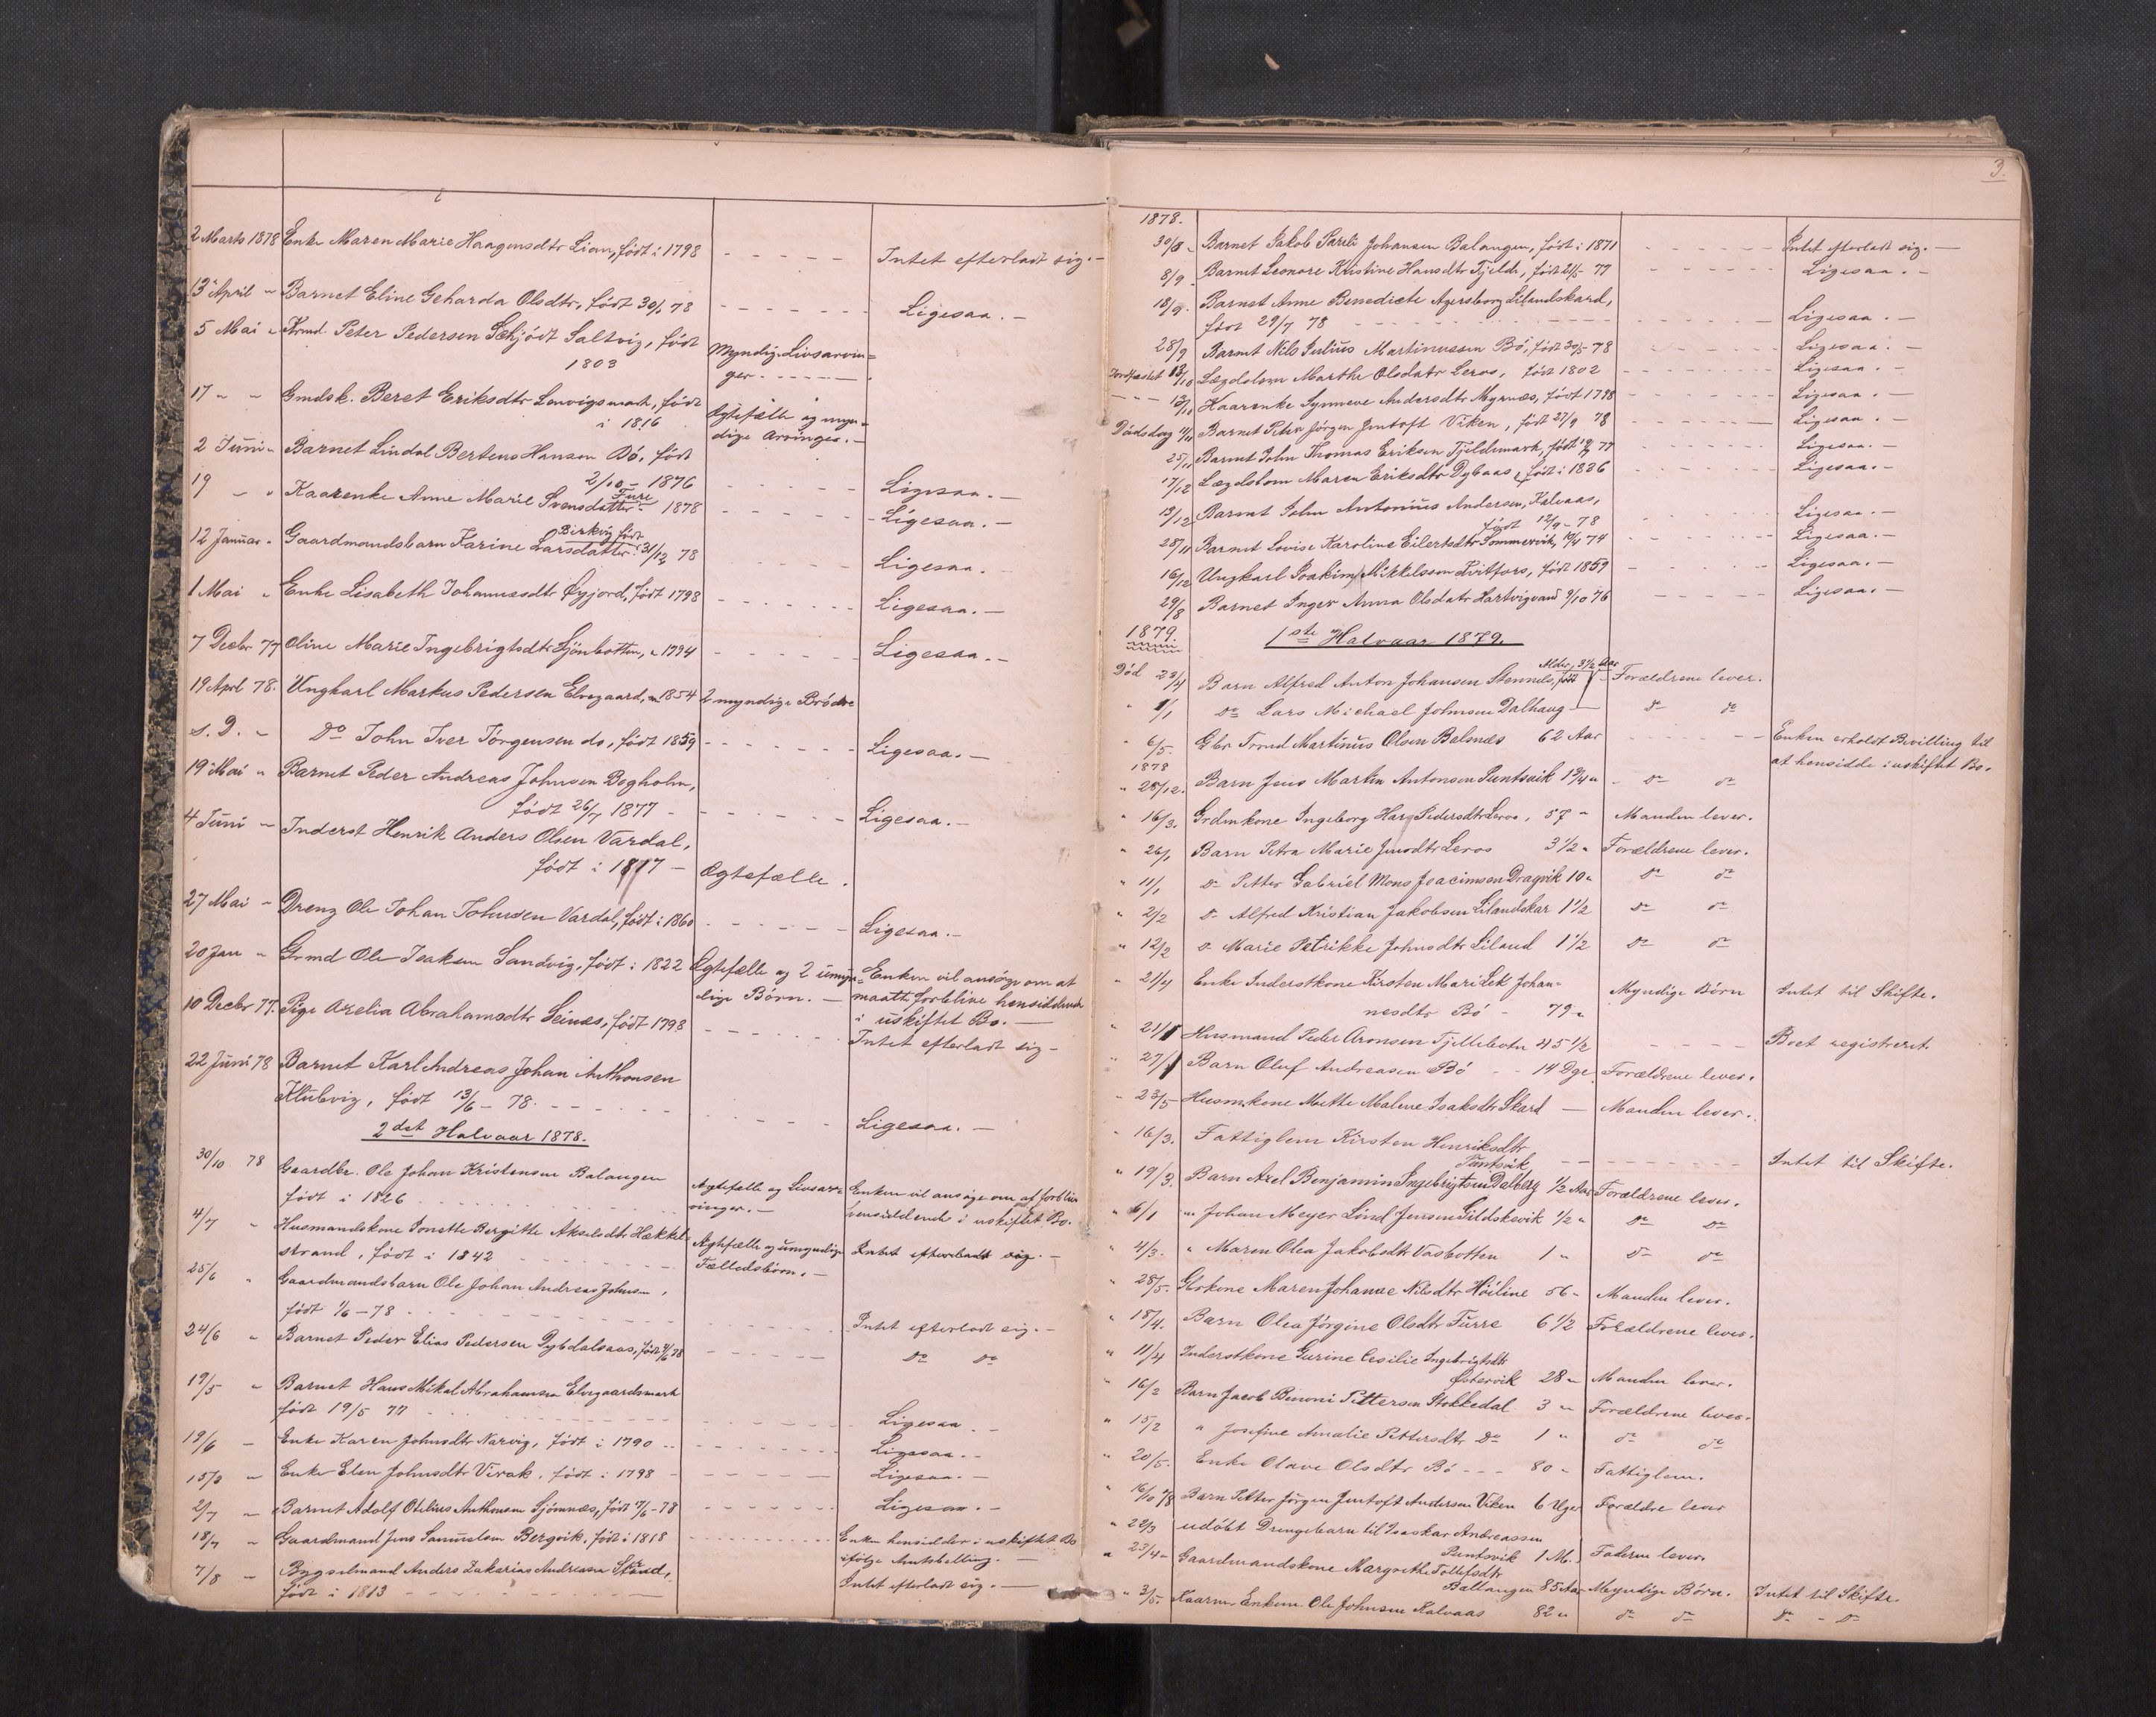 2 Marts 1878 Enke Maren Marie Haagensdtr Lian, født i 1798 - - - - - Intet efterladt sig. -
13 April " Barnet Eline Geharda Olsdtr, født 30/1 78 - - - - - Ligesaa. -
5 Mai " Grmd. Peter Pedersen Saltvig, født
1803
Myndige Livsarvin=
ger. - - - - -
17 " " Gmdsk. Beret Eriksdtr født
i 1816
Ægtefælle og myn=
dige Arvinger. -
2 Juni " Barnet Lindal Bertens Hansen Bö, født
2/10 - 1876 - - - - - Ligesaa. -
19 " " Kaarenke Anne Marie Svensdatter Fure 1878 - - - - - Ligesaa. -
12 Januar " Gaardmandsbarn Karine Larsdatter Birkvig født 31/12 78 - - - - - Ligesaa. -
1 Mai " Enke Lisabeth Johannesdtr Øyjord, født 1798 - - - - - Ligesaa. -
7 Decbr 77 Oline Marie Ingebrigtsdtr Sjönbotten, " 1794 - - - - - Ligesaa. -
19 Aprl 78. Ungkarl Markus Pedersen Elvegaard, " 1854 2 myndige Brödre
s. D. " Do John Iver Jörgensen do, født 1859 - - - - - Ligesaa. -
19 Mai " Barnet Peder Andreas Johnsen Bogholm,
født 26/7 1877 - - - - - Ligesaa. -
4 Juni " Inderst Henrik Anders Olsen Vardal,
født i 1817 - Ægtefælle.
27 Mai " Dreng Ole Johan Johnsen Vardal, født i 1860 - - - - - Ligesaa. -
20 Jan " Grmd Ole Isaksen Sandvig, født i 1822 Ægtefælle og 2 umyn= Enken vil ansöge om at
dige Börn. - maatte forblive hensiddende
i uskiftet Bo. -
10 Decbr 77. Pige Axelia Abrahamsdtr Seines, født 1798 - - - - - Intet efterladt sig -
22 Juni 78 Barnet Karl Andreas Johan Anthonsen
Klubvig, født 13/6 - 78. - - - - - Ligesaa. -
2det Halvaar 1878.
30/10 78 Gaardbr. Ole Johan Kristensen Balangen
født i 1826 - - - - -
Ægtefælle og Livsar=
vinger. -
Enken vil ansöge om at forblive
hensiddende i uskiftet Bo.
4/7 " Husmandskone Jonette Bergitte Akselsdtr Hækkel=
strand, født i 1842 - - - - -
Ægtefælle og umyndige
Fælledsbörn. -
Intet efterladt sig. -
25/6 " Gaardmandsbarn Ole Johan Andreas Johnsen,
født 1/6 - 78 - - - - - Intet efterladt sig. -
24/6 " Barnet Peder Elias Pedersen Dybdalsaas, født 4/6 78 - - - - - Do Do
19/5 " Barnet Hans Mikal Abrahamsen Elvegaardsmark
født 19/5 77 - - - - - Ligesaa -
19/6 - Enke Karen Johnsdtr Narvig, født i 1790 - - - - - Ligesaa. -
15/9 " Enke Elen Johnsdtr Virak, født i 1798 - - - - - Ligesaa. -
2/7 " Barnet Adolf Otelius Anthonsen Sjömnæs, født 17/6 - 78 - - - - - Ligesaa. -
18/7 " Gaardmand Jens Samuelsen Bergvik, født i 1818 - - - - - Enken hensidder i uskiftet Bo
ifölge Amtsbevilling. -
7/8 " Bygselmand Anders Zakarias Andreasen Strand,
født i 1813 - - - - - Intet efterladt sig. -
3.
1878.
30/8 " Barnet Jakob Pareli Johansen Balangen, født i 1871 - - - - - Intet efterladt sig. -
8/9 . Barnet Leonore Kristine Hansdtr Tjeldø, født 21/5 - 77 - - - - - Ligesaa. -
18/9 . Barnet Anne Benedicte Agersborg Lilandskard,
født 29/7 78 - - - - - Ligesaa. -
28/9 Barnet Nils Julius Martinussen Bö, født 30/5 - 78 - - - - - Ligesaa. -
Jordfæstet 13/10 Lægdslem Marthe Olsdatr Leros, født 1802 - - - - - Ligesaa. -
- - - 13/10 Kaarenke Synneve Andersdtr Myrnæs, født 1798 - - - - - Ligesaa. -
Dödsdag 11/11 Barnet Peter Jörgen Jentoft Viken, født 27/9 78 - - - - - Ligesaa. -
25/11 Barnet John Thomas Eriksen Tjeldemark, født 77 - - - - - Ligesaa. -
17/12 Lægdslem Maren Eriksdtr Dybaas, født i 1836 - - - - - Ligesaa. -
13/12 Barnet John Antonius Andersen, Kalvaas,
født 12/9 - 78 - - - - - Ligesaa. -
28/11 Barnet Lovise Karoline Eilertsdtr Sommervik, 19/4 74 - - - - - Ligesaa. -
16/12 Ungkarl Joakim Mikkelsen Kvitfors, født 1859 - - - - - Ligesaa. -
29/8 Barnet Inger Anna Olsdatr Hartvigvand 9/10 76 - - - - - Ligesaa. -
1879. 1ste Halvaar 1879.
Död 23/4 Barn Alfred Anton Johansen Stennes, født Alder, 3 1/2 Aar - Forældrene lever.
" 1/1 Do Lars Michael Johnsen Dalhaug - do do
" 6/5. Gbr Trmd Martinus Olsen Belsnæs 62 Aar - - - - - Enken erholdt Bevilling til
at hensidde i uskiftet Bo.
1878
" 28/12. Barn Jens Martin Antonsen Puntsvik 1 3/4 " - do do
" 16/3. Grdmkone Ingeborg Hars Pedersdtr Leros, 57 " Manden lever.
" 26/1 Barn Petra Marie Jensdtr Leros 3 1/2 " Forældrene lever.
" 11/1 Do Petter Gabriel Mons Joacimsen Dragvik 10 " do do
" 2/2 Do Alfred Kristian Jakobsen Lilandskar 1 1/2 do do
" 12/2 Do Marie Petrikke Johnsdtr Liland 1 1/2 do do
" 21/4 Enke Inderstkone Kirsten Mari Lek Johan=
nesdtr Bö - 79 " Myndige Börn Intet til Skifte.
" 21/1 Husmand Peder Aronsen Tjellebotn 45 1/2 - - - - - Boet registreret.
" 27/1 Barn Oluf Andreasen Bö - - 14 Dge Forældrene lever.
" 23/5 Husmkone Mette Malene Isaksdtr Skard - Manden lever.
" 16/3. Fattiglem Kirsten Henriksdtr
Puntsvik - - - - - Intet til Skifte.
" 19/3. Barn Axel Benjamin Ingebrigtsen Dalberg 1/2 Aar Forældrene lever.
" 6/1 " Johan Meyer Lind Jensen Sildskevik 1/2 " do do
" 4/3. " Maren Olea Jakobsdtr Vasbotten 1 " do do
" 28/5. Gbrkone Maren Johanne Nilsdtr Höiline 56 " Manden lever.
" 18/4. Barn Olea Jörgine Olsdtr Furre 6 1/2 Forældrene lever.
" 11/4 Inderstkone Gurine Cecilie Ingebrigtsdtr
Østervik 28 " Manden lever.
" 16/2 Barn Jacob Benoni Pettersen Stokkedal 3 " Forældrene lever.
" 15/2 " Josefine Amalie Pettersdtr Do 1 " do do
" 20/5. Enke Olave Olsdtr Bö - - - 80 " Fattiglem.
" 16/10 78 Barn Petter Jörgen Jentoft Andersen Viken 6 Uger Forældre lever
" 22/3 udöbt Drengebarn til Isaskar Andreassen
Puntsvik 1 M. Faderen lever.
" 23/4 - Gaardmandskone Margrethe Tollefsdtr
Ballangen 85 Aar Myndige Börn. Intet til Skifte.
" 3/5. Kaarm. Enkem Ole Johnsen Kalvaas 82 " do do do - do